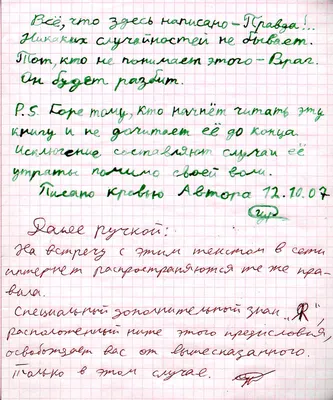 Всё, что здесь написано – Правда!..
Никаких случайностей не бывает.
Тот, кто не понимает этого – Враг.
Он будет разбит.
P.S. Горе тому, кто начнёт читать эту
книгу и не дочитает её до конца.
Исключение составляют случаи её
утраты помимо своей воли.
Писано кровью Автора 12.10.07
Далее ручкой:
На встречу с этим текстом в сети
интернет распространяются те же пра-
вила.
Специальный дополнительный знак „Я",
расположенный ниже этого предисловия,
освобождает вас от вышесказанного.
Только в этом случае.